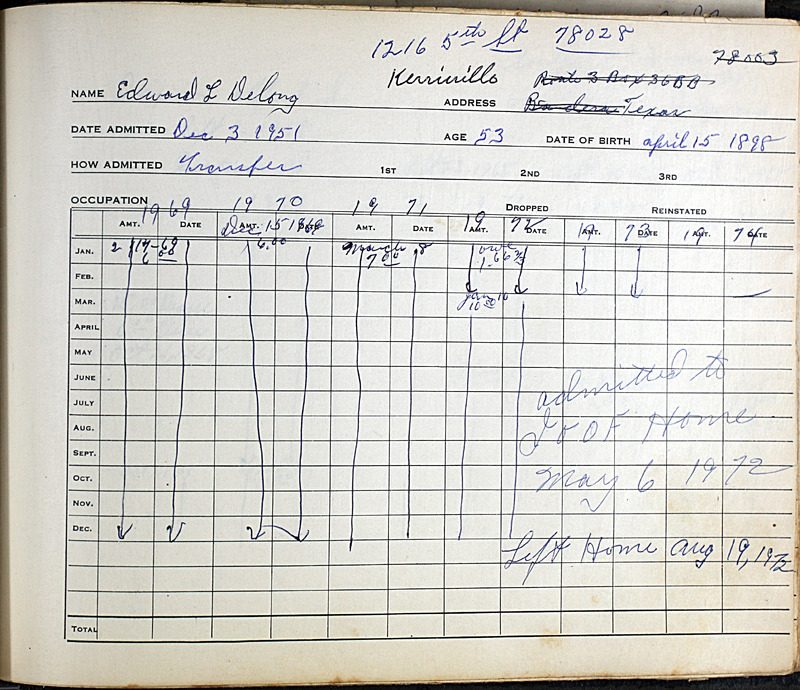 1216 5th St 78028
Kerrville 78003
Route 3 Box 36BB
NAME Edward L Delong ADDRESS Bandera Texas
DATE ADMITTED Dec 3 1951 AGE 53 DATE OF BIRTH april 15 1898
HOW ADMITTED Transfer 1ST 2ND 3RD
OCCUPATION DROPPED REINSTATED
19 69 19 70 19 71 19 72 19 73 19 74
AMT. DATE AMT. DATE AMT. DATE AMT. DATE AMT. DATE AMT. DATE
Dec 15
JAN. 6.00 March 8 owe
6 00 7 00
FEB.
MAR. Jan 10
10 50
APRIL
MAY
JUNE admitted to
JULY
AUG. IOOF Home
SEPT.
OCT. May 6 1972
NOV.
DEC.
Left Home Aug 19, 1972
TOTAL